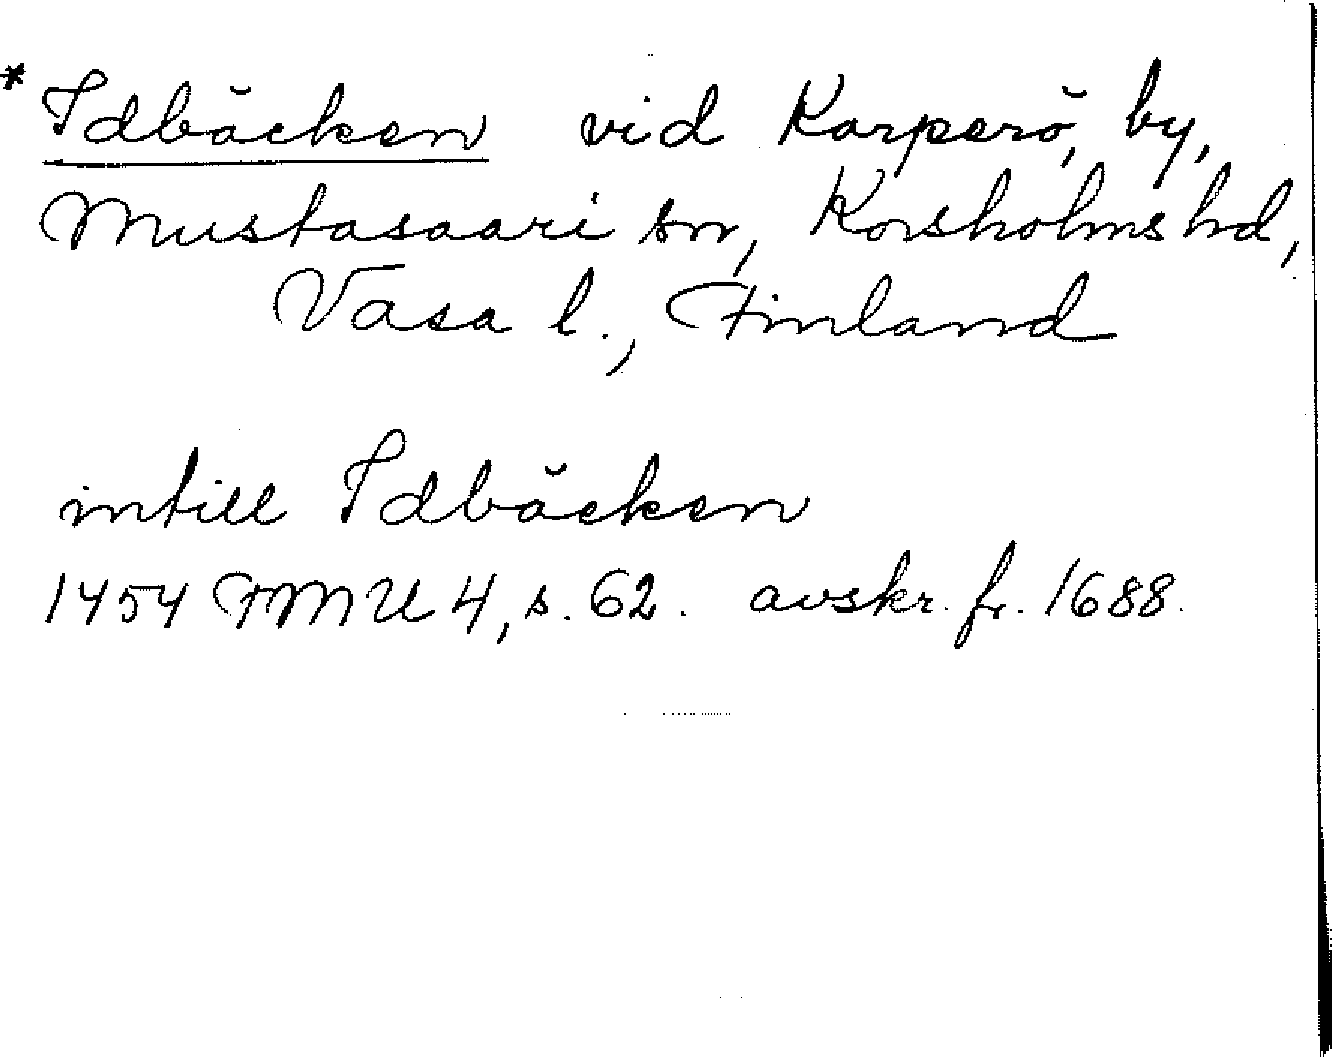 * Idbäcken vid Karperö, by,
Mustasaari sn, Korsholms hd,
Vasa l., Finland
intill Idbäcken
1454 FMU 4, s. 62. avskr. fr. 1688.